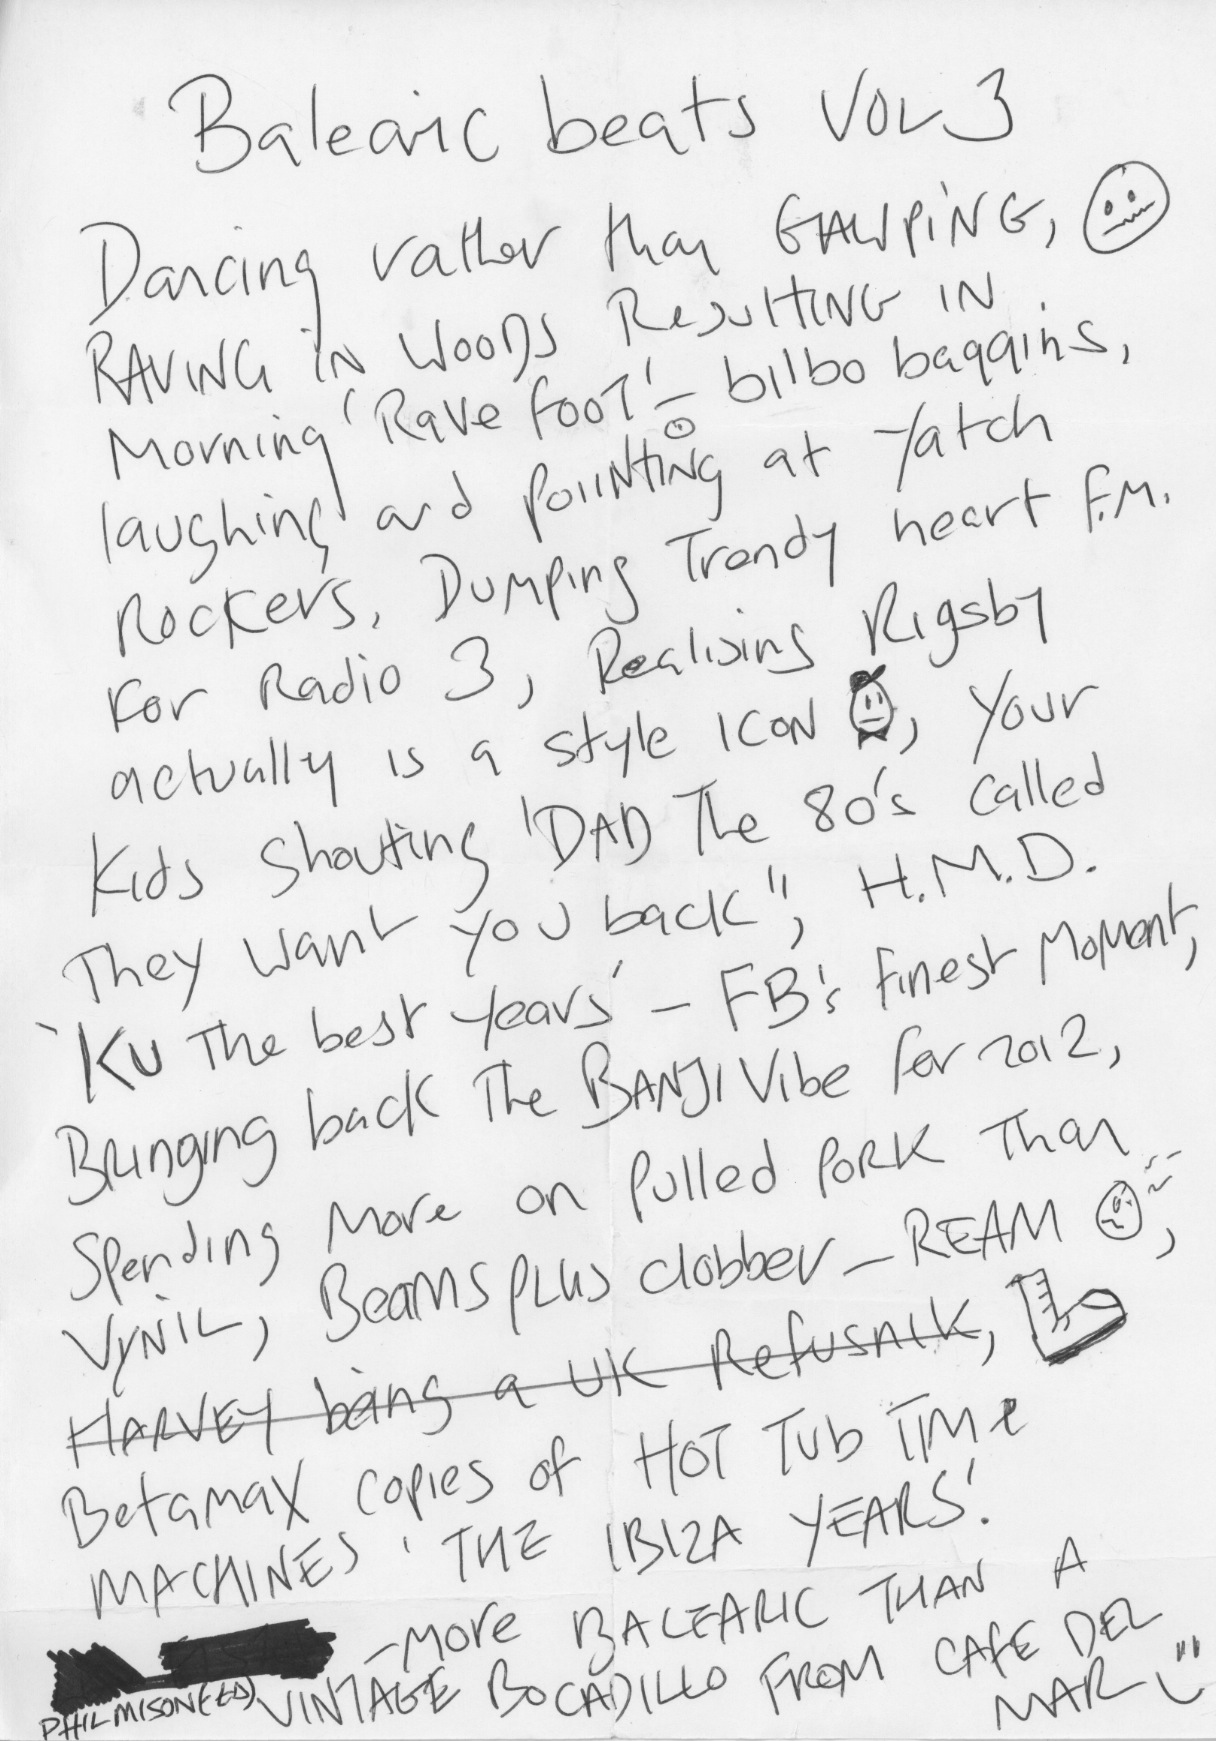 Balearic beats VOL 3
Dancing rather than GAWPING,
RAVING IN WOODS Resulting IN
Morning 'Rave foot' - bilbo baggins,
laughing and poiinting at Yatch
Rockers, Dumping Trendy heart F.M.
For Radio 3, Realising Rigsby
actually is a style ICON, Your
Kids Shouting 'DAD The 80's called
They want you back", H.M.D.
'KU The best years' - FB's finest Moment,
Bringing back The BANJI Vibe for 2012,
Spending More on pulled PORK Than
VYNIL, Beams plus clobber - REAM,
HARVEY being a UK Refusnik,
Betamax copies of HOT TUb TIMe
MACHINES 'THE IBIZA YEARS'.
- MORe BALEARIC THAN A
PHIL MISON (ED) VINTAGE BOCADILLO FROM CAFE DEL
MAR